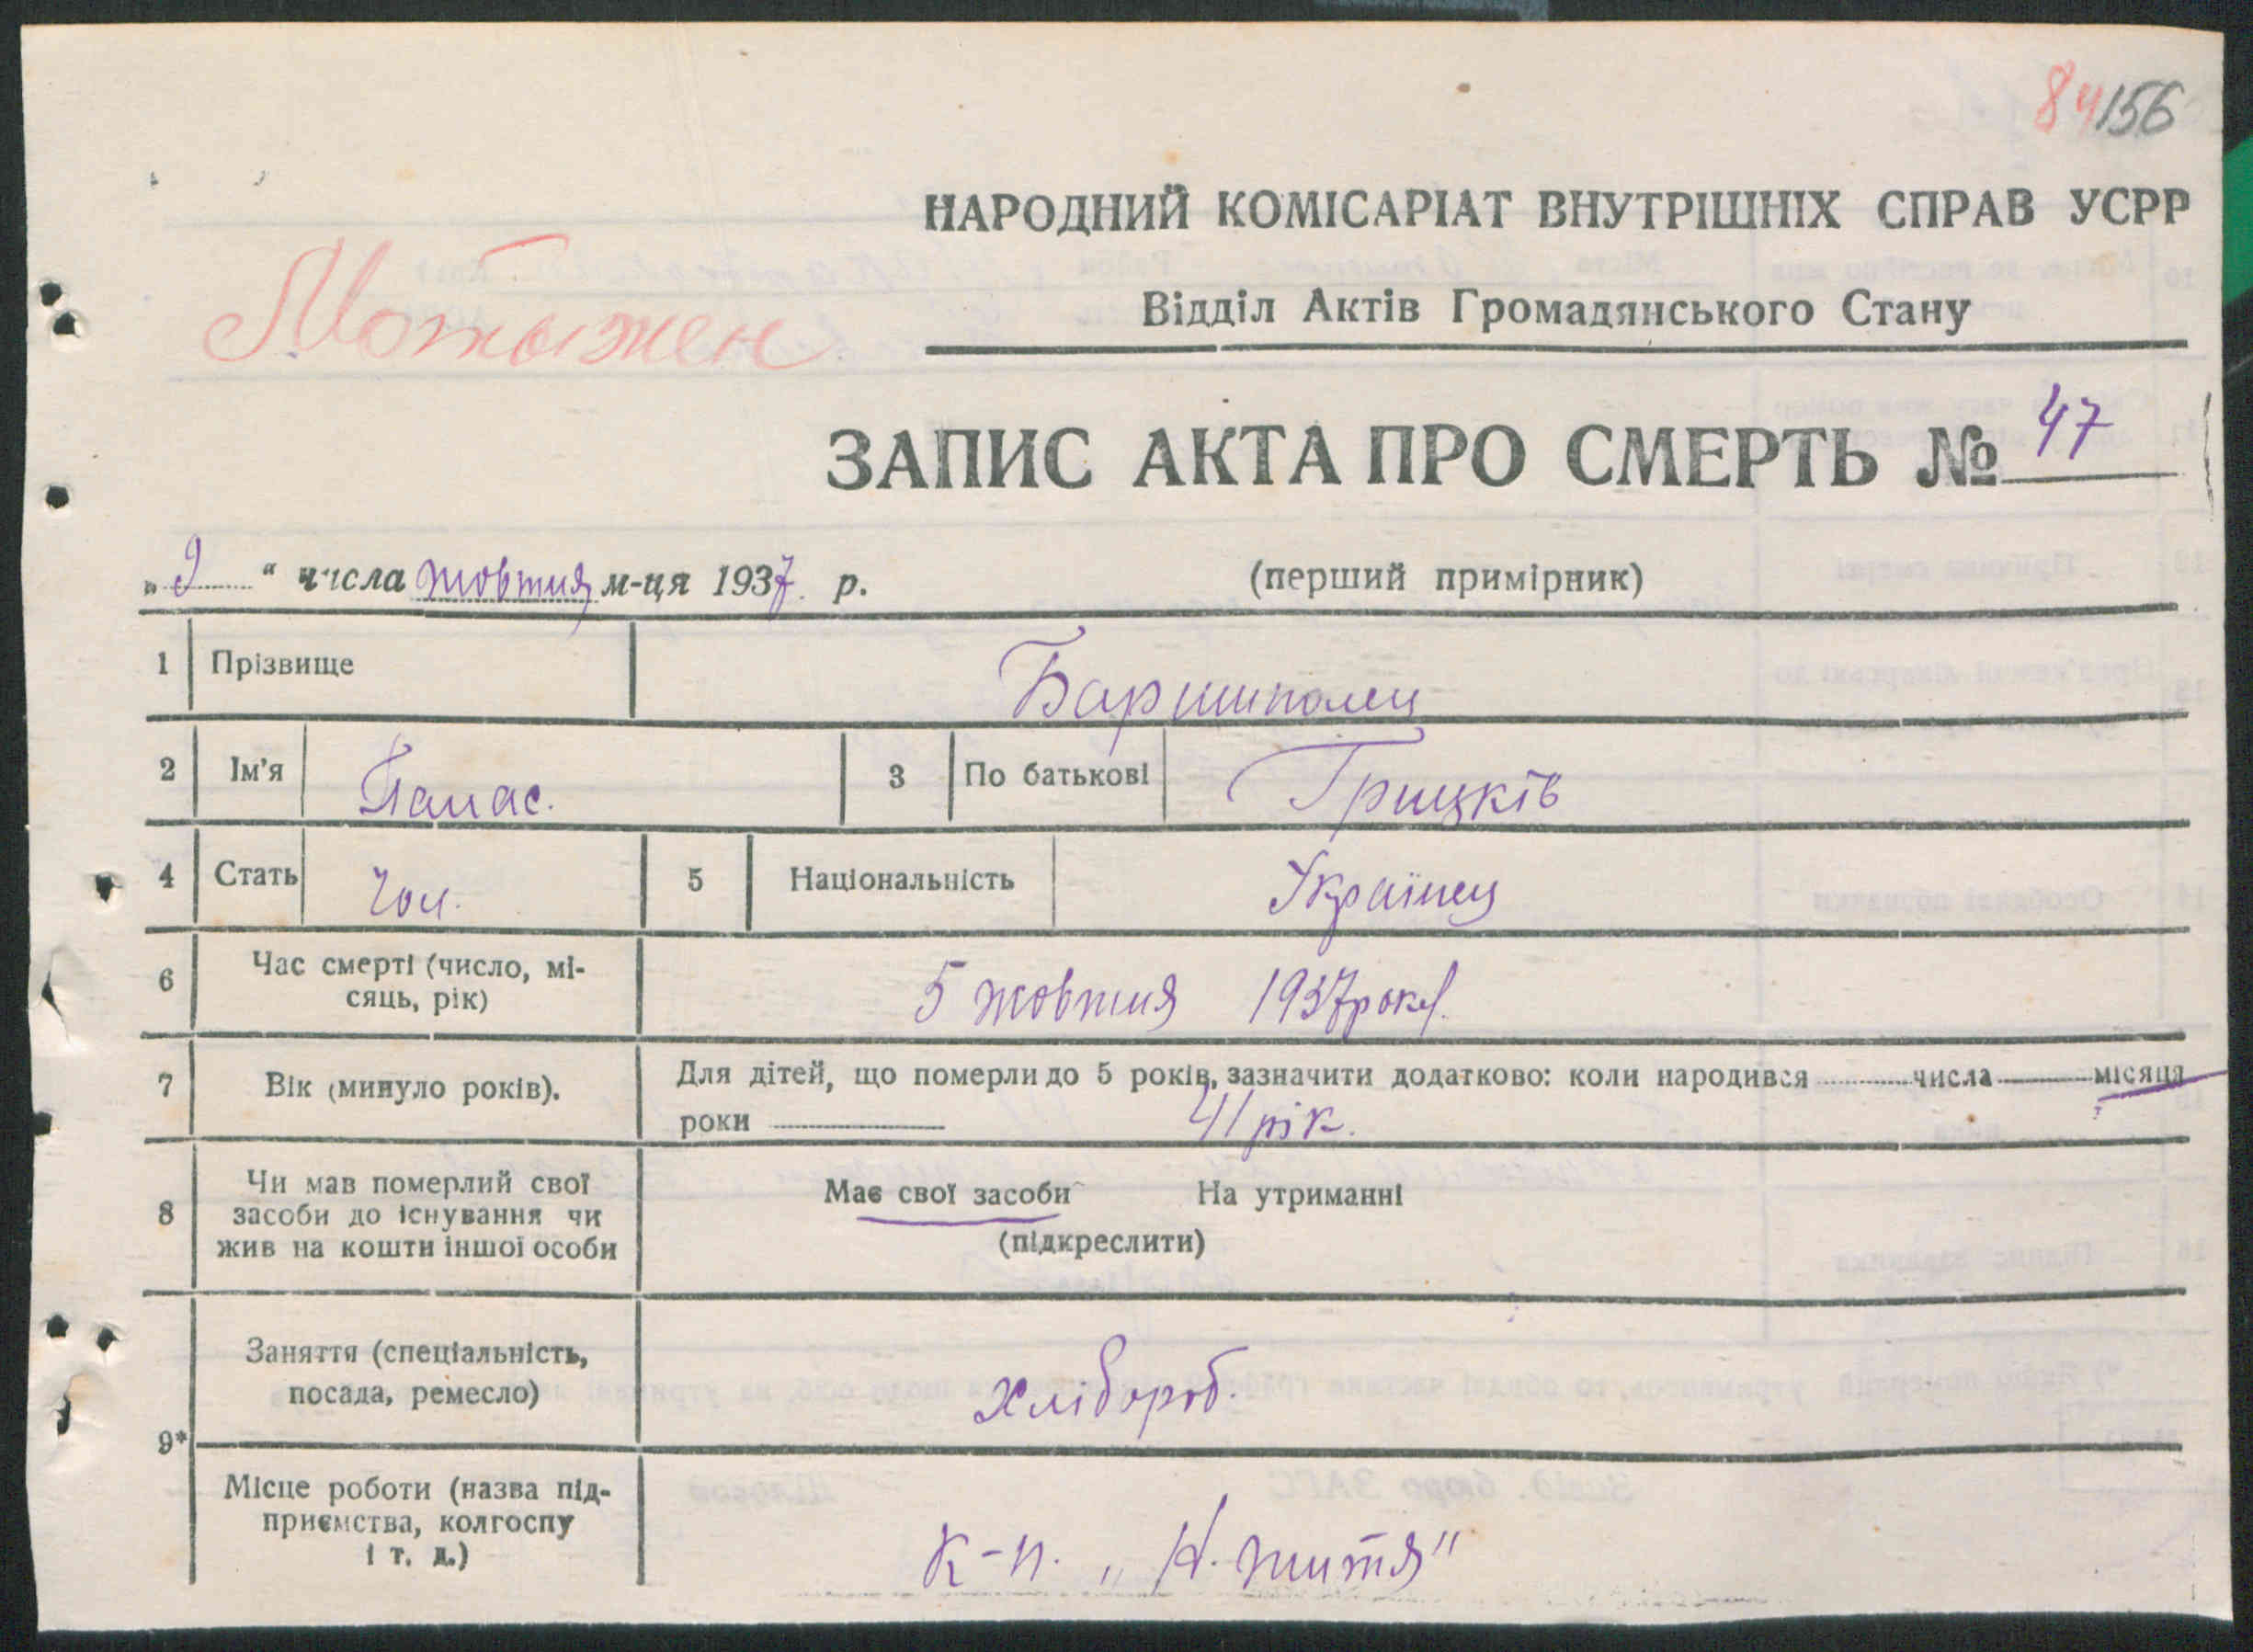 84 156
НАРОДНИЙ КОМІСАРІАТ ВНУТРІШНІХ СПРАВ УСРР
Мотыжен
Відділ Актів Громадянського Стану
ЗАПИС АКТА ПРО СМЕРТЬ № 47
„ 9 “ числа жовтня м-ця 1937 р. (перший примірник)
1 Прізвище Баришполец
2 Ім'я Панас. 3 По батькові Грицків
4 Стать Чол. 5 Національність Українец
6 Час смерті (число, мі-
сяць, рік) 5 жовтня 1937 року.
7 Вік (минуло років). Для дітей, що померли до 5 років, зазначити додатково: коли народився числа місяця
роки 41 рік.
8 Чи мав померлий свої
засоби до існування чи
жив на кошти іншої особи
Має свої засоби На утриманні
(підкреслити)
9* Заняття (спеціальність,
посада, ремесло) Хлібороб.
Місце роботи (назва під-
приємства, колгоспу
і т. д.) К-п. „Н. життя"